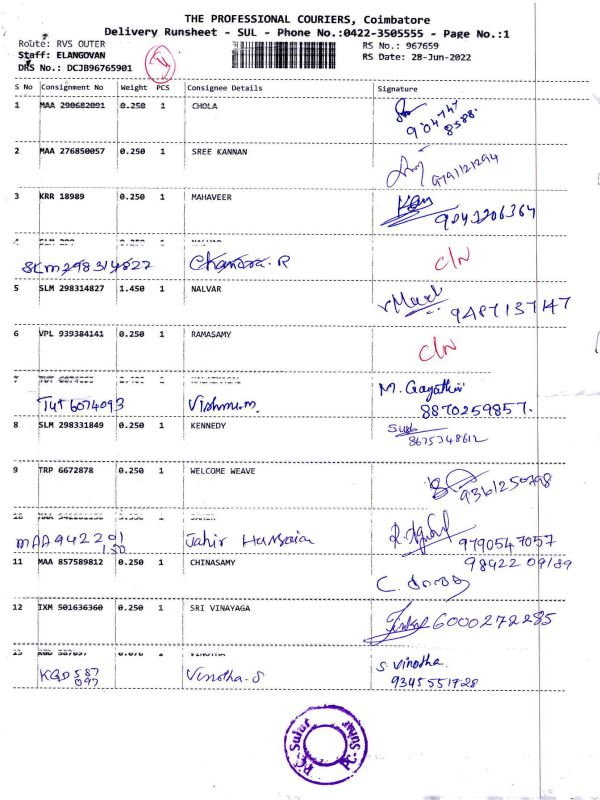 THE PROFESSIONAL COURIERS, Coimbatore
Delivery Runsheet - SUL - Phone No.:0422-3505555 - Page No.:1
Route: RVS OUTER RS No.: 967659
Staff: ELANGOVAN RS Date: 28-Jun-2022
DRS No.: DCJB96765901
S No Consignment No Weight PCS Consignee Details Signature
1 MAA 290682091 0.250 1 CHOLA
904747
8588.
2 MAA 276850057 0.250 1 SREE KANNAN
9791121294
3 KRR 18989 0.250 1 MAHAVEER
9843206364
SLM 298314822 Chandra. R C/N
5 SLM 298314827 1.450 1 NALVAR
9487137147
6 VPL 939384141 0.250 1 RAMASAMY
C/N
7
M. Gayathiri
TUT 6074093 Vishnu.m. 8870259857.
8 SLM 298331849 0.250 1 KENNEDY
8675348612
9 TRP 6672878 0.250 1 WELCOME WEAVE
9361250798
10
MAA 942201 Jahir Hussain 9790547057
150
11 MAA 857589812 0.250 1 CHINASAMY 98422 09189
12 IXM 501636360 0.250 1 SRI VINAYAGA
6000272285
13 KGD 587097 0.070 1 VINOTHA
KGD 587 Vinotha.S S. Vinotha.
097 9345551728
P.C. Sulur